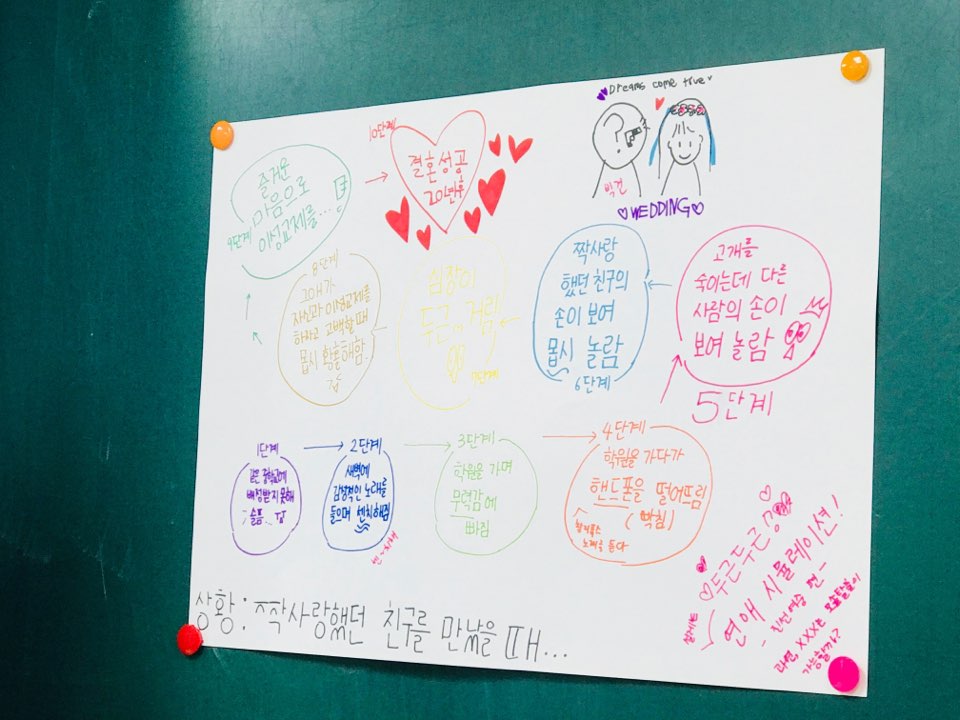 상황: 짝사랑했던 친구를 만났을 때...
1단계
같은 중학교에
배정받지 못해
슬픔...
2단계
새벽에
감성적인 노래를
들으며 센치해짐
3단계
학원을 가며
무력감에
빠짐
4단계
학원을 가다가
핸드폰을 떨어뜨림
(빡침)
노래를 듣다
5단계
고개를
숙이는데 다른
사람의 손이
보여 놀람
6단계
짝사랑
했던 친구의
손이 보여
몹시 놀람
7단계
심장이
두근..거림
8단계
그애가
자신과 이성교제를
하자고 고백할 때
몹시 황홀해함.
9단계
즐거운
마음으로
이성교제를...
10단계
결혼성공
20년후
Dreams come true
WEDDING
두근두근
연애 시뮬레이션!
과연, XXX는 모쏠탈출이
가능할까?